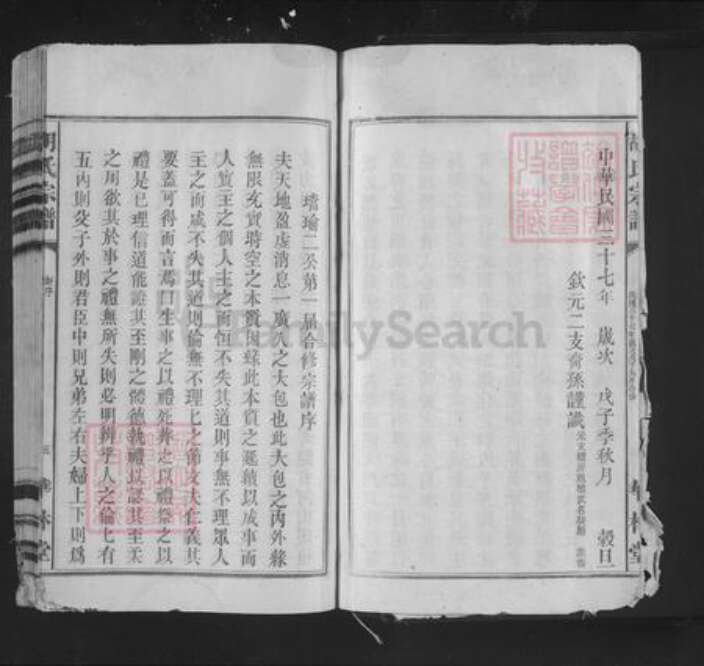 胡氏宗譜
中華民國三十七年 歲次 戊子季秋月 榖旦
欽元二支裔孫謹識
FamilySearch
璿瑜二公第一屆合修宗譜序
夫天地盈虛消息一廣大之大包也此大包之內外緣
無限充實時空之本質因緣此本質之延續以成事而
人實主之個人主之而恒不失其道則事無不理眾人
主之而咸不失其道則倫無不理比之節文夫仁義其
要蓋可得而言焉曰生事之以禮死葬之以禮祭之以
禮是已理信道能證其至剛之體德就禮以證其至柔
之用欲其於事之禮無所失則必明辨乎人之倫七有
五內則父子外則君臣中則兄弟左右夫婦上下則為
胡氏宗譜
林堂